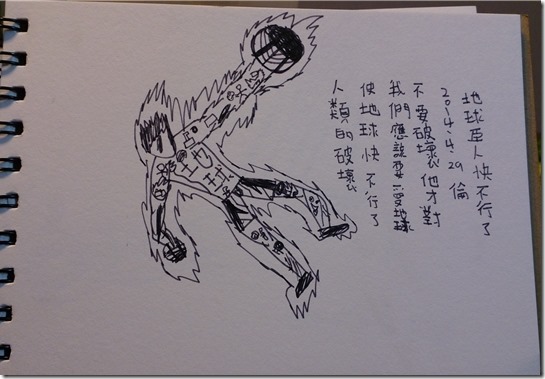 人類的破壞
使地球快不行了
我們應該要愛地球
不要破壞他才對
2014、4、29 倫
地球巨人快不行了